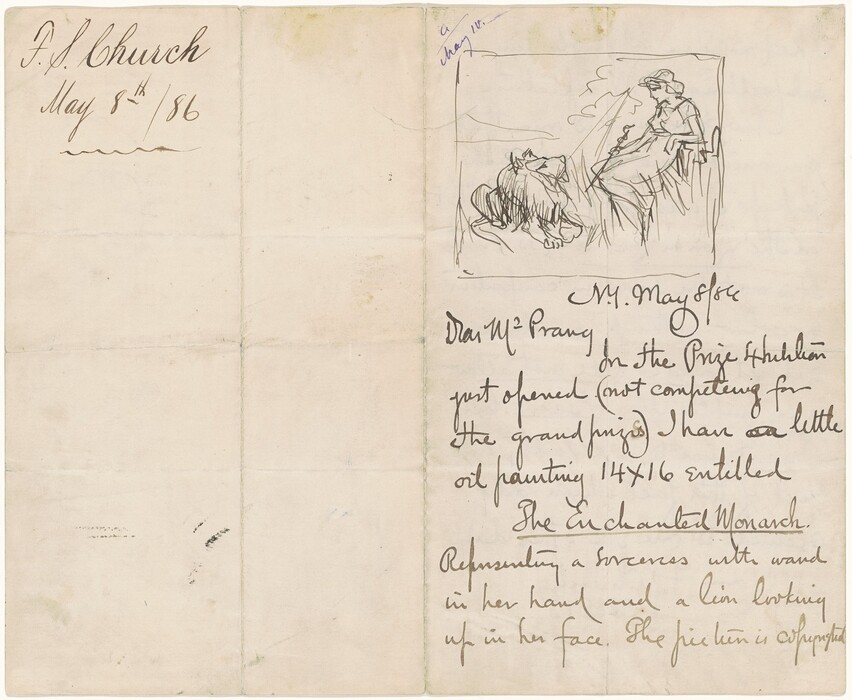 F. S. Church
May 8th /86
a
May 10.
N.Y. May 8/86
Dear Mr Prang
In the Prize Exhibition
just opened (not competing for
the grand prizes) I have a little
oil painting 14X16 entitled
The Enchanted Monarch.
Representing a sorceress with wand
in her hand and a lion looking
up in her face. The picture is copyrighted